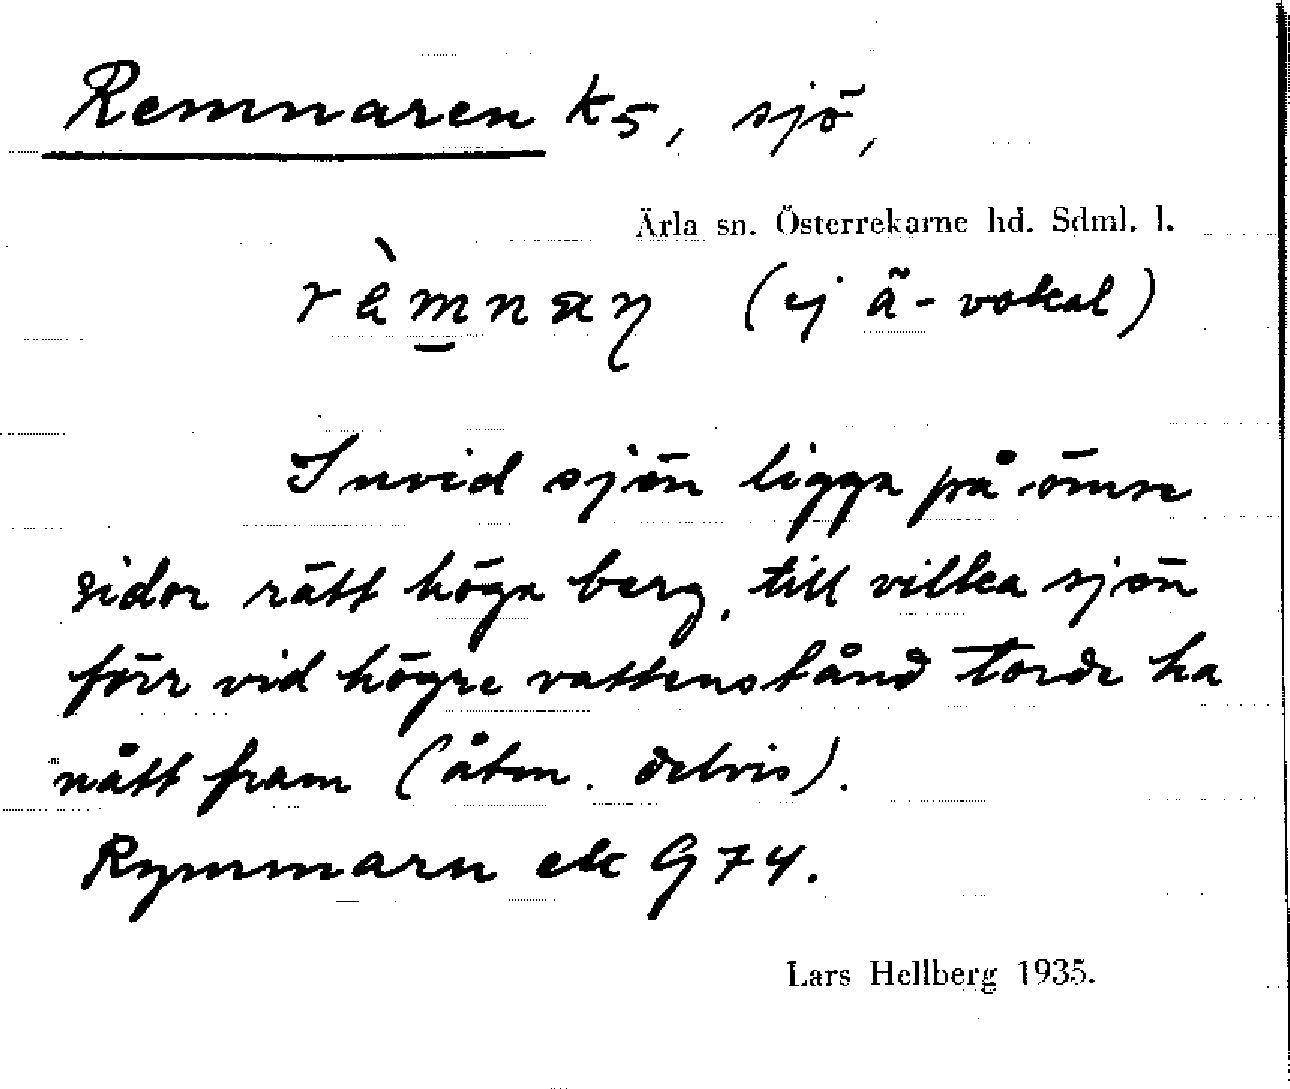 Remnaren k5, sjö,
Ärla sn. Österrekarne hd. Sdml. l.
rèmnaṇ (ej ä-vokal)
Invid sjön ligga på ömse
sidor rätt höga berg, till vilka sjön
förr vid högre vattenstånd torde ha
nått fram (åtm. delvis).
Rymmarn ek G74.
Lars Hellberg 1935.